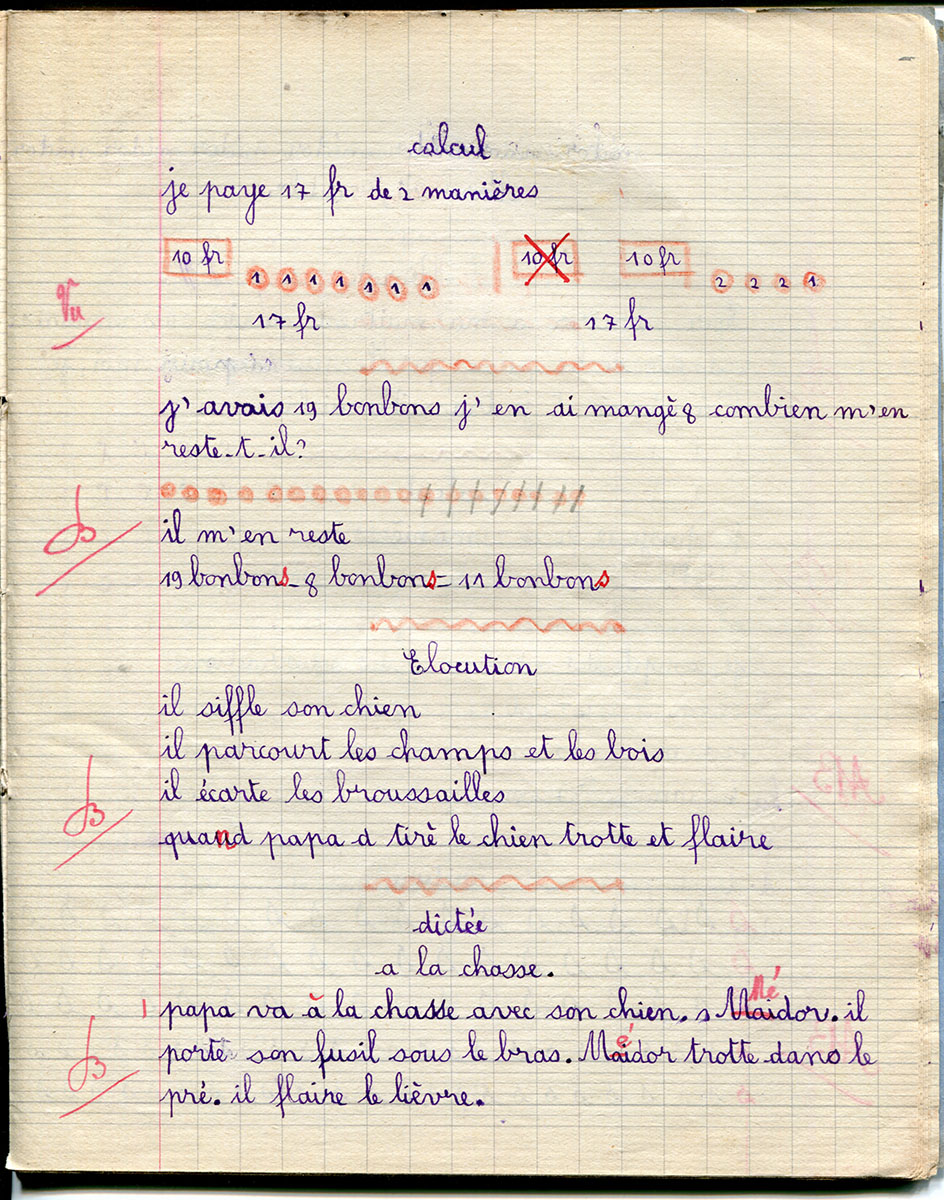 calcul
je paye 17 fr de 2 manières
10 fr 1 1 1 1 1 1 1 10 fr 10 fr 2 2 2 1
Vu
17 fr 17 fr
j'avais 19 bonbons j'en ai mangè 8 combien m'en
reste-t-il?
B
il m'en reste
19 bonbons - 8 bonbons = 11 bonbons
Elocution
il siffle son chien
il parcourt les champs et les bois
il écarte les broussailles
B
quand papa a tirè le chien trotte et flaire
dictée
a la chasse.
Mé
1 papa va à la chasse avec son chien. Maidor. il
é
porte son fusil sous le bras. Maidor trotte dans le
B
pré. il flaire le lièvre.